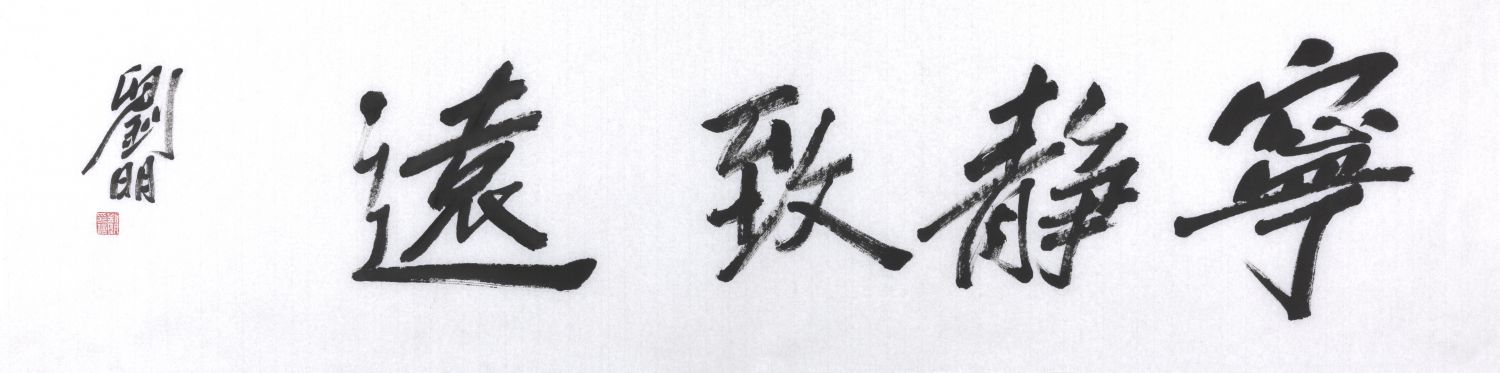 寧靜致遠
劉明